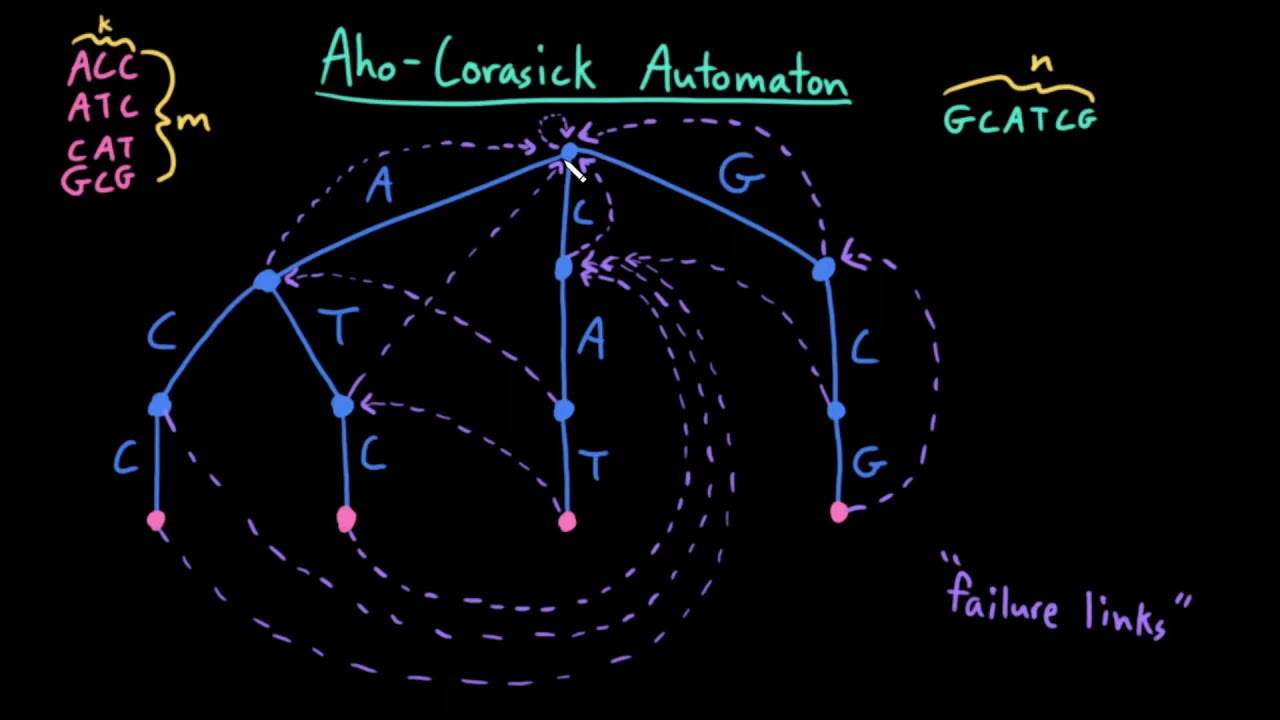 k
ACC
ATC
CAT
GCG
m
Aho-Corasick Automaton
n
GCATCG
A
C
G
C
T
A
C
C
C
T
G
"failure links"